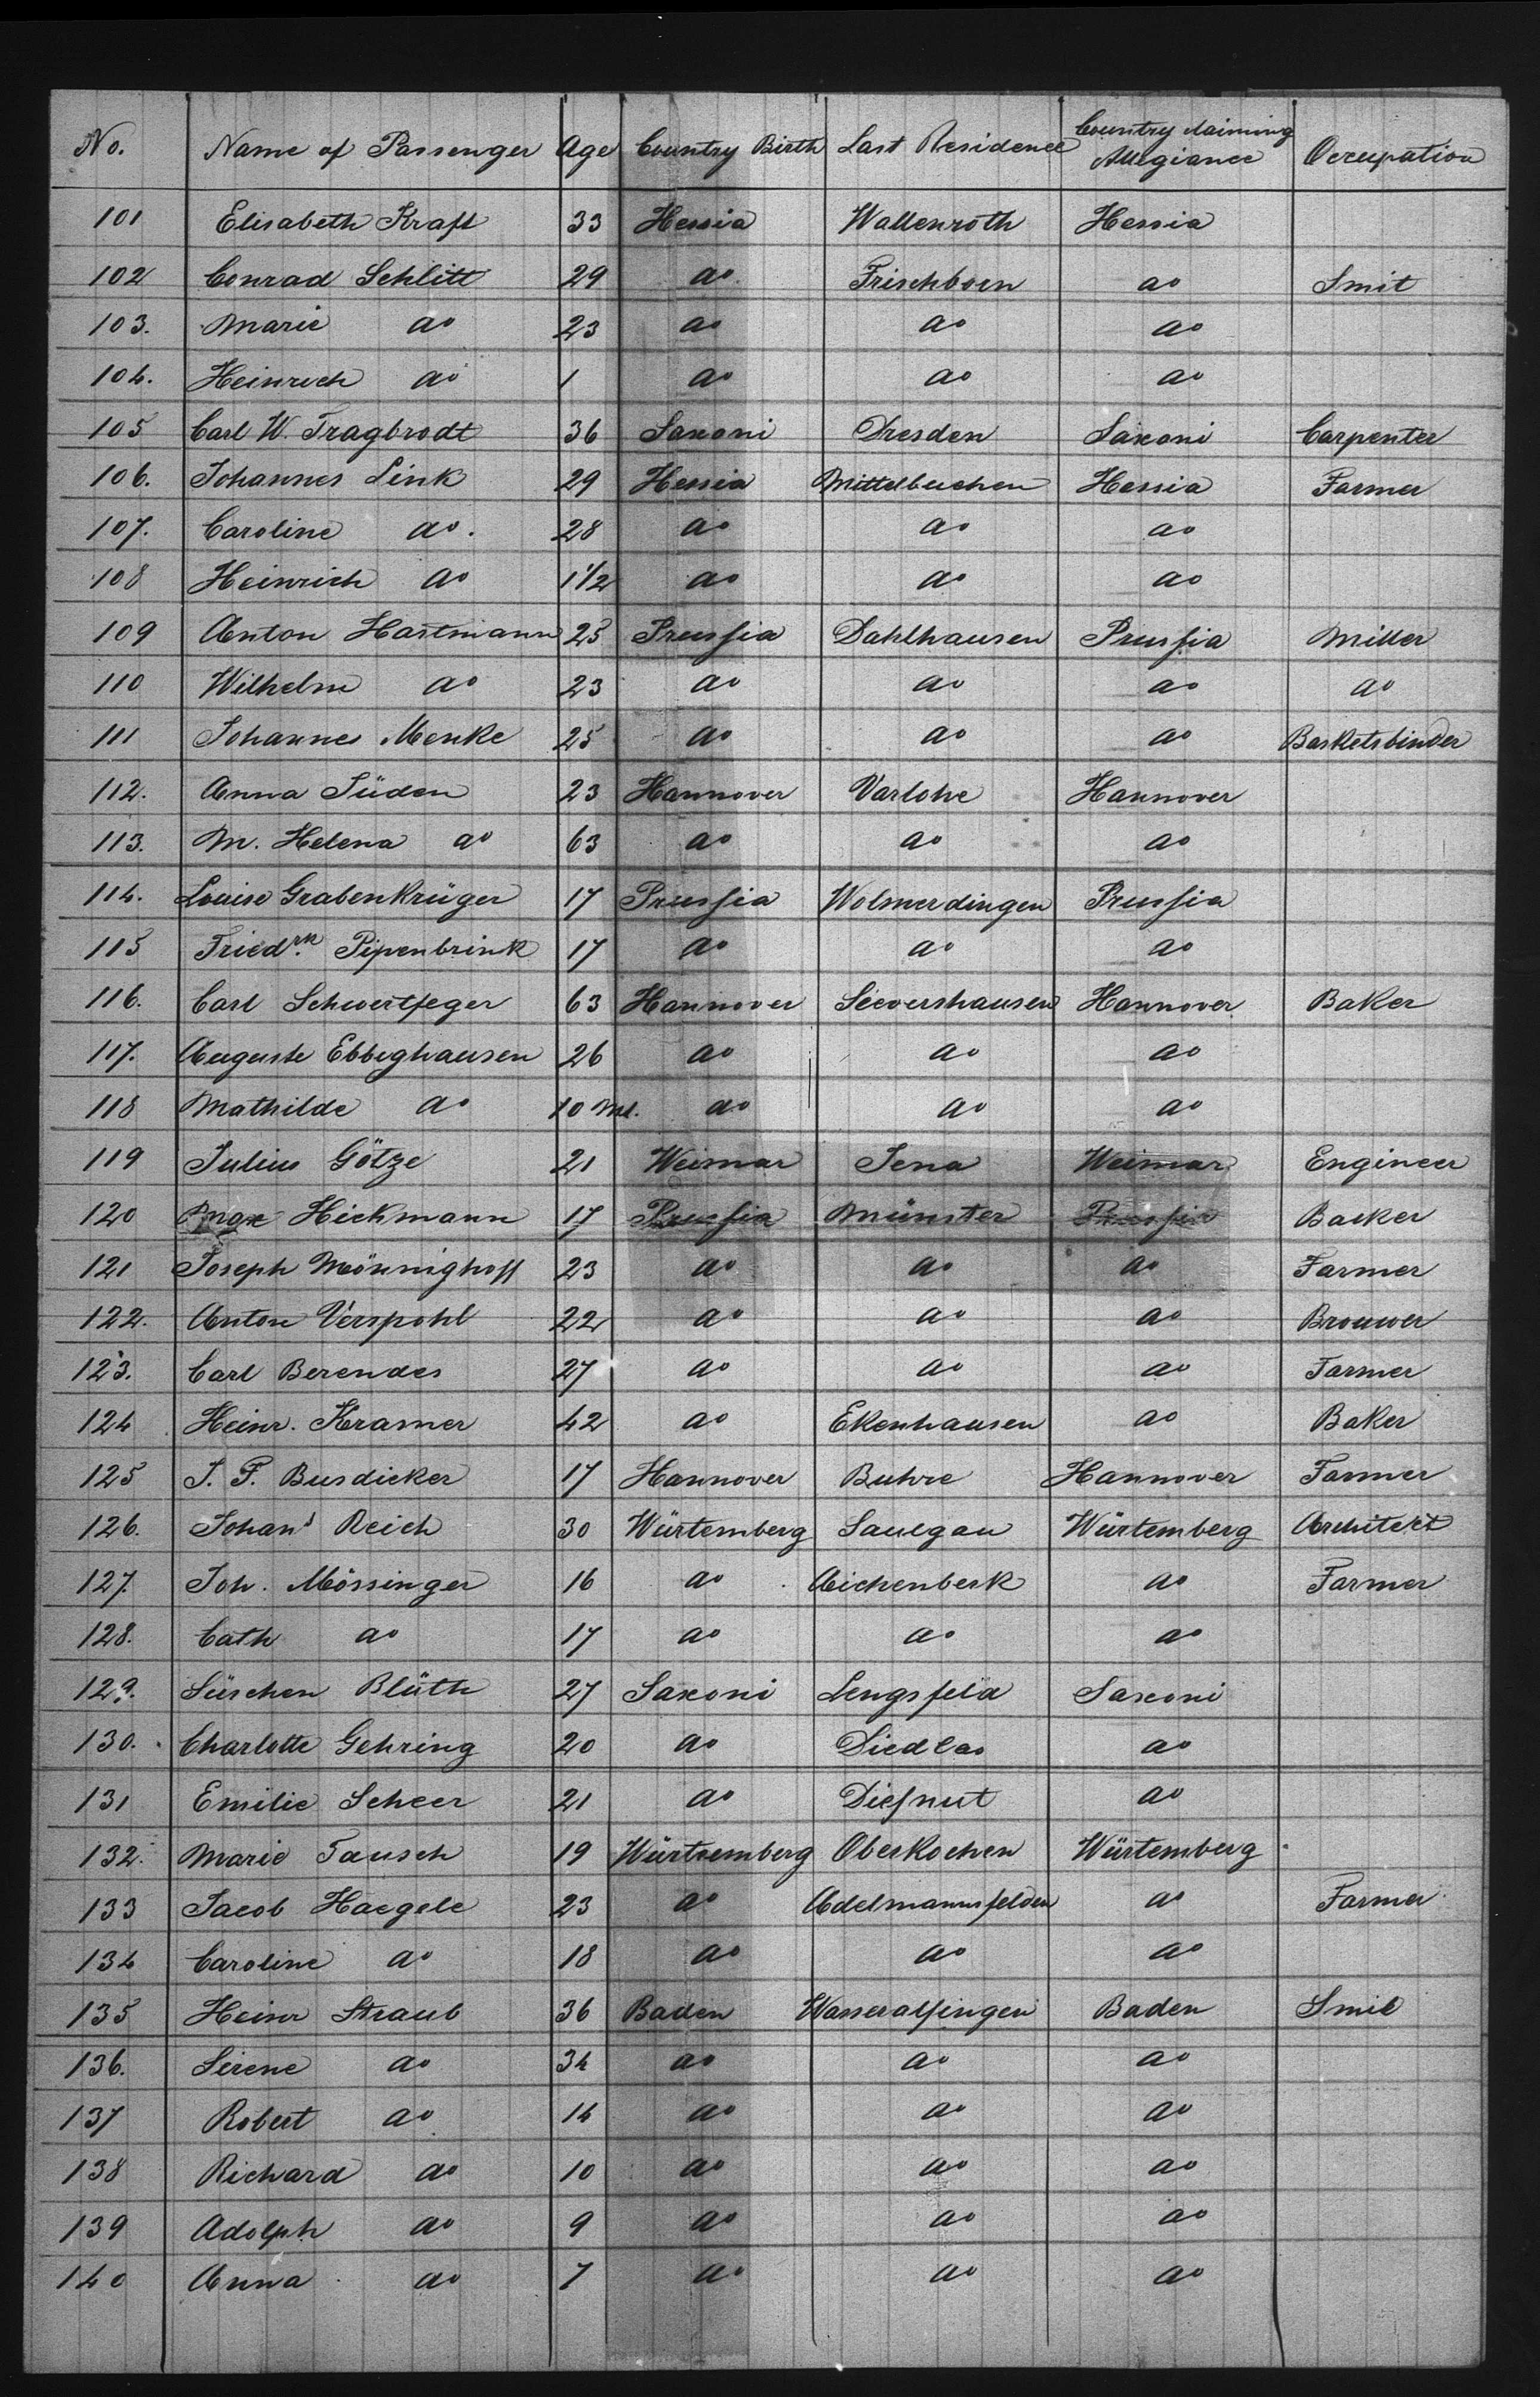 No. Name of Passenger Age Country Birth Last Residence Country claiming Allegiance Occupation
101 Elisabeth Kraft 33 Hessia Wallenroth Hessia
102 Conrad Schlitt 29 do Frischborn do Smit
103. Marie do 23 do do do
104. Heinrich do 1 do do do
105 Carl W. Tragbrodt 36 Saxoni Dresden Saxoni Carpenter
106. Johannes Link 29 Hessia Mittelbuchen Hessia Farmer
107. Caroline do. 28 do do do
108 Heinrich do 1 1/2 do do do
109 Anton Hartmann 25 Prussia Dahlhausen Prussia Miller
110 Wilhelm do 23 do do do do
111 Johannes Menke 25 do do do Basketsbinder
112. Anna Süden 23 Hannover Varlohe Hannover
113. M. Helena do 63 do do do
114. Louise Grabenkrüger 17 Prussia Wolmerdingen Prussia
115 Friedrk. Pipenbrink 17 do do do
116. Carl Schwertfeger 63 Hannover Seevershausen Hannover Baker
117. Auguste Ebbeghausen 26 do do do
118 Mathilde do 10 Mt. do do do
119 Julius Götze 21 Weimar Jena Weimar Engineer
120 Hickmann 17 Prussia Münster Prussia Backer
121 Joseph Mönninghoff 23 do do do Farmer
122. Anton Verspohl 22 do do do Brouwer
123. Carl Berendes 27 do do do Farmer
124 Heinr. Kramer 42 do Ekenhausen do Baker
125 J. F. Busdicker 17 Hannover Buhre Hannover Farmer
126. Johans Reich 30 Würtemberg Saulgau Würtemberg Architekt
127. Joh. Mössinger 16 do Aichenberk do Farmer
128. Cath do 17 do do do
129. Süschen Blüth 27 Saxoni Lengsfeld Saxoni
130. Charlotte Gehring 20 do Diedlas do
131 Emilie Scheer 21 do do
132. Marie Tausch 19 Würtemberg Oberkochen Würtemberg
133 Jacob Haegele 23 do Adelmannsfelden do Farmer
134 Caroline do 18 do do do
135 Heinr Straub 36 Baden Wasseralfingen Baden Smit
136. Sirene do 34 do do do
137 Robert do 14 do do do
138 Richard do 10 do do do
139 Adolph do 9 do do do
140 Anna do 7 do do do